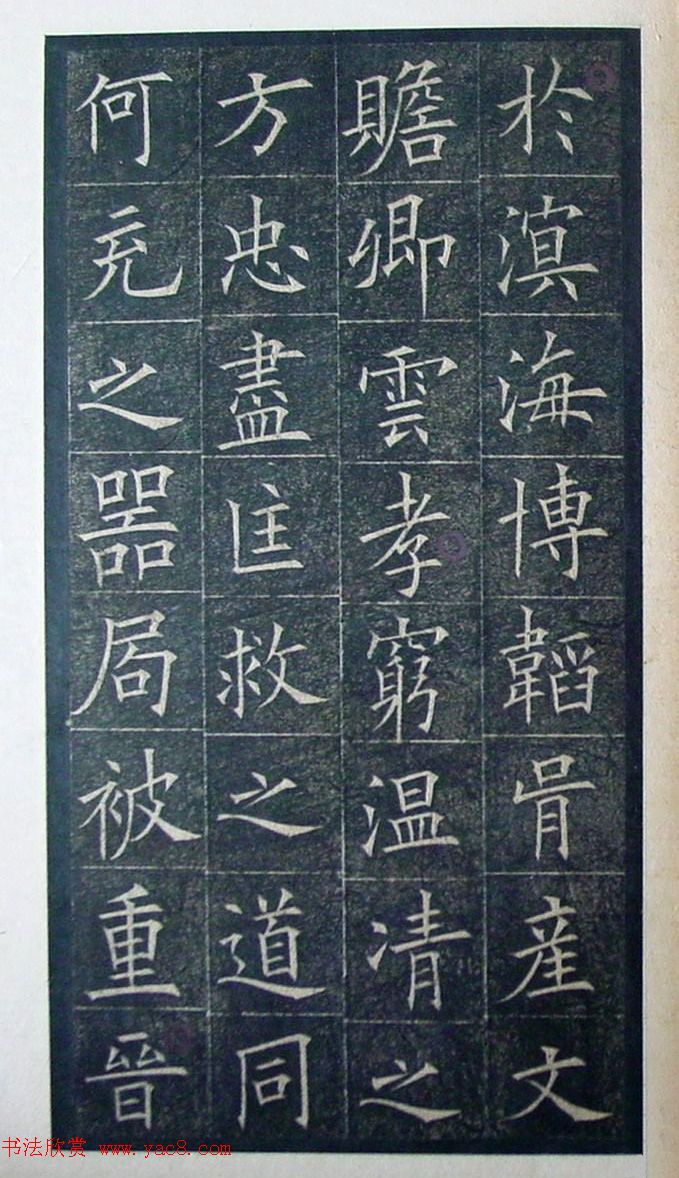 於溟海博韜胥産文
贍卿雲孝窮温凊之
方忠盡匡救之道同
何充之器局被重晉
书法欣赏 www.yac8.com